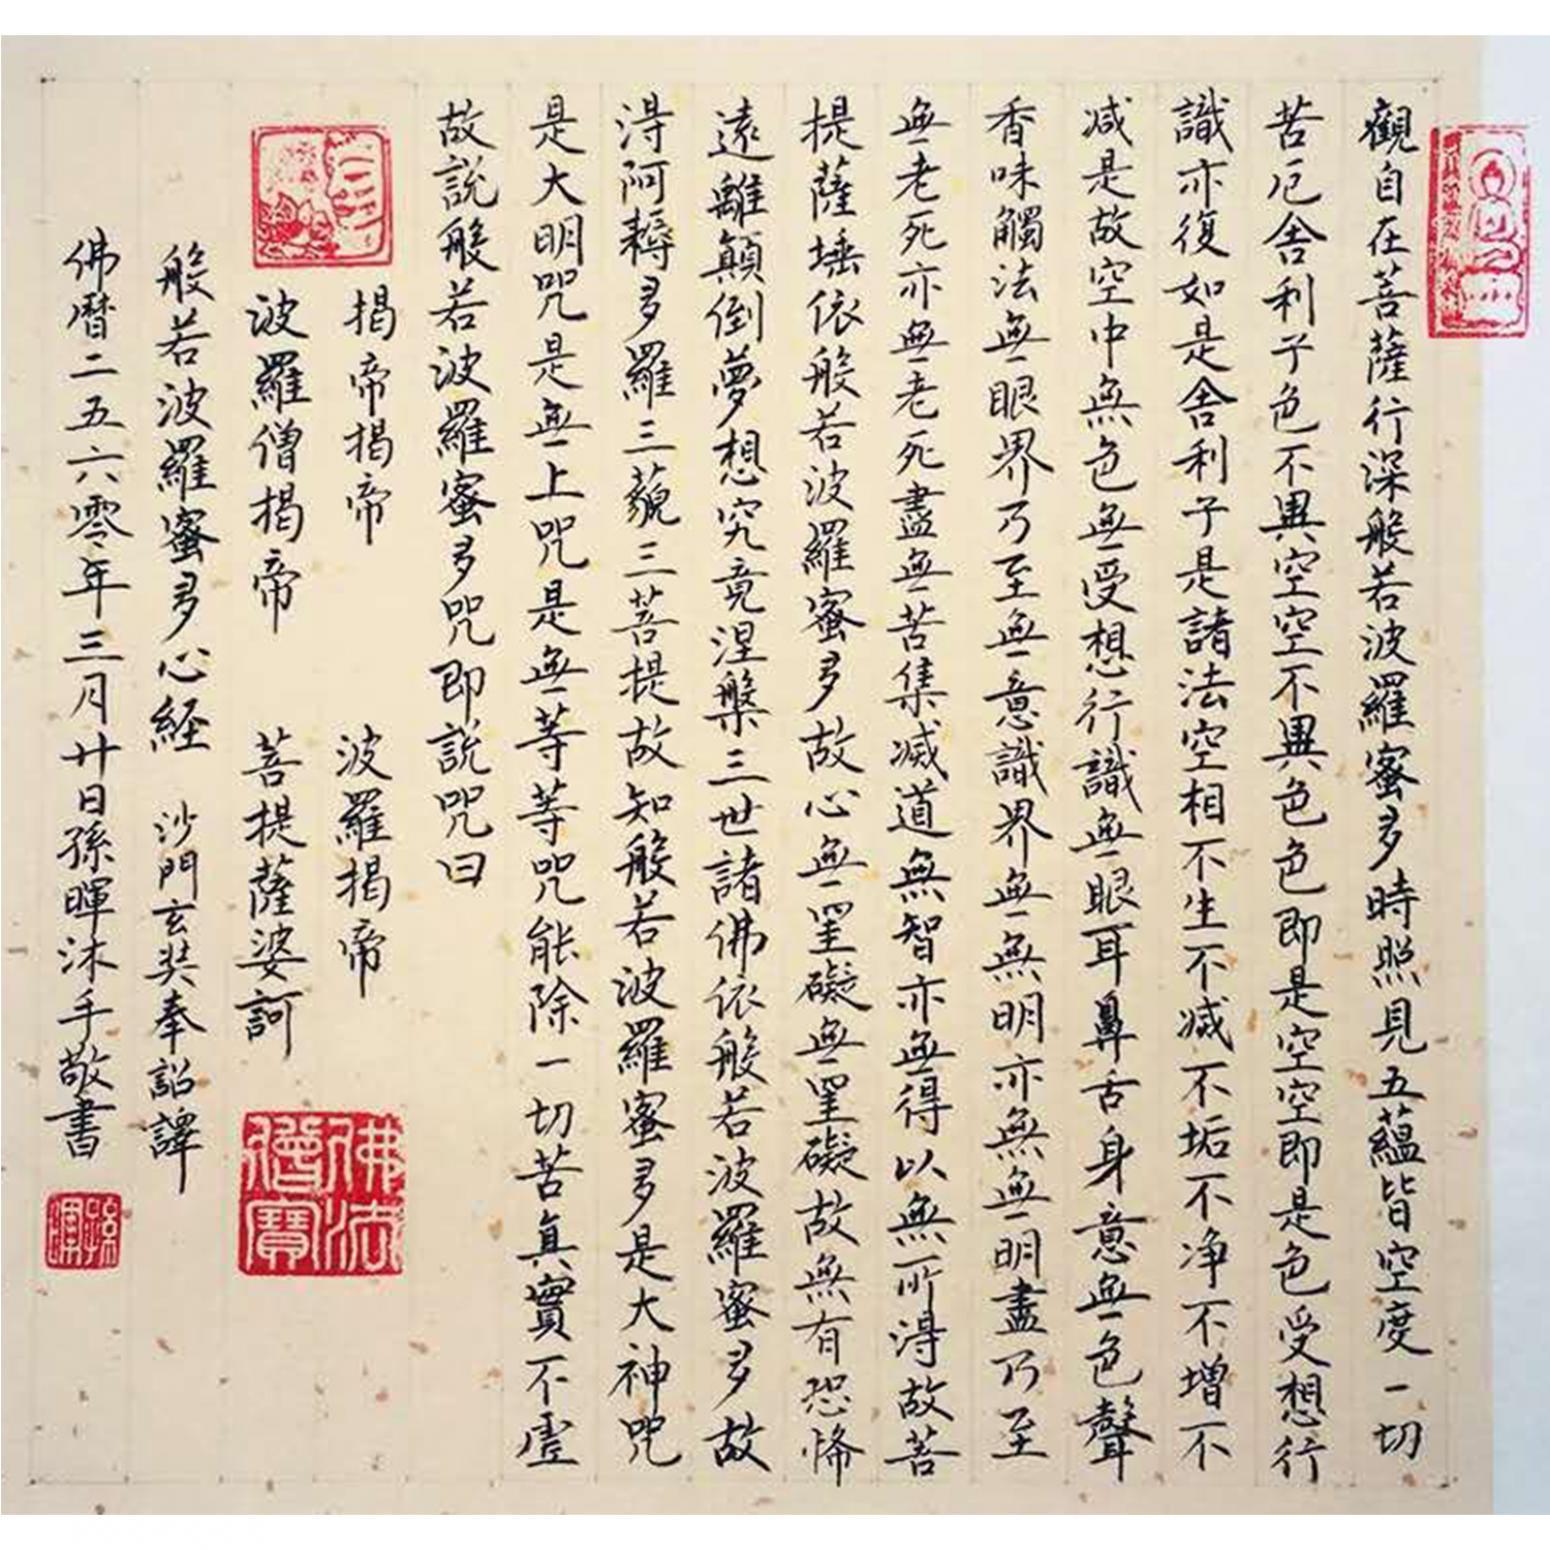 觀自在菩薩行深般若波羅蜜多時照見五蘊皆空度一切
苦厄舍利子色不異空空不異色色即是空空即是色受想行
識亦復如是舍利子是諸法空相不生不滅不垢不净不增不
减是故空中無色無受想行識無眼耳鼻舌身意無色聲
香味觸法無眼界乃至無意識界無無明亦無無明盡乃至
無老死亦無老死盡無苦集滅道無智亦無得以無所得故菩
提薩埵依般若波羅蜜多故心無罣礙無罣礙故無有恐怖
遠離顛倒夢想究竟涅槃三世諸佛依般若波羅蜜多故
得阿耨多羅三藐三菩提故知般若波羅蜜多是大神咒
是大明咒是無上咒是無等等咒能除一切苦真實不虛
故說般若波羅蜜多咒即說咒曰
揭帝揭帝 波羅揭帝
波羅僧揭帝 菩提薩婆訶
般若波羅蜜多心経 沙門玄奘奉詔譯
佛曆二五六零年三月廿日孫暉沐手敬書
佛法僧寶